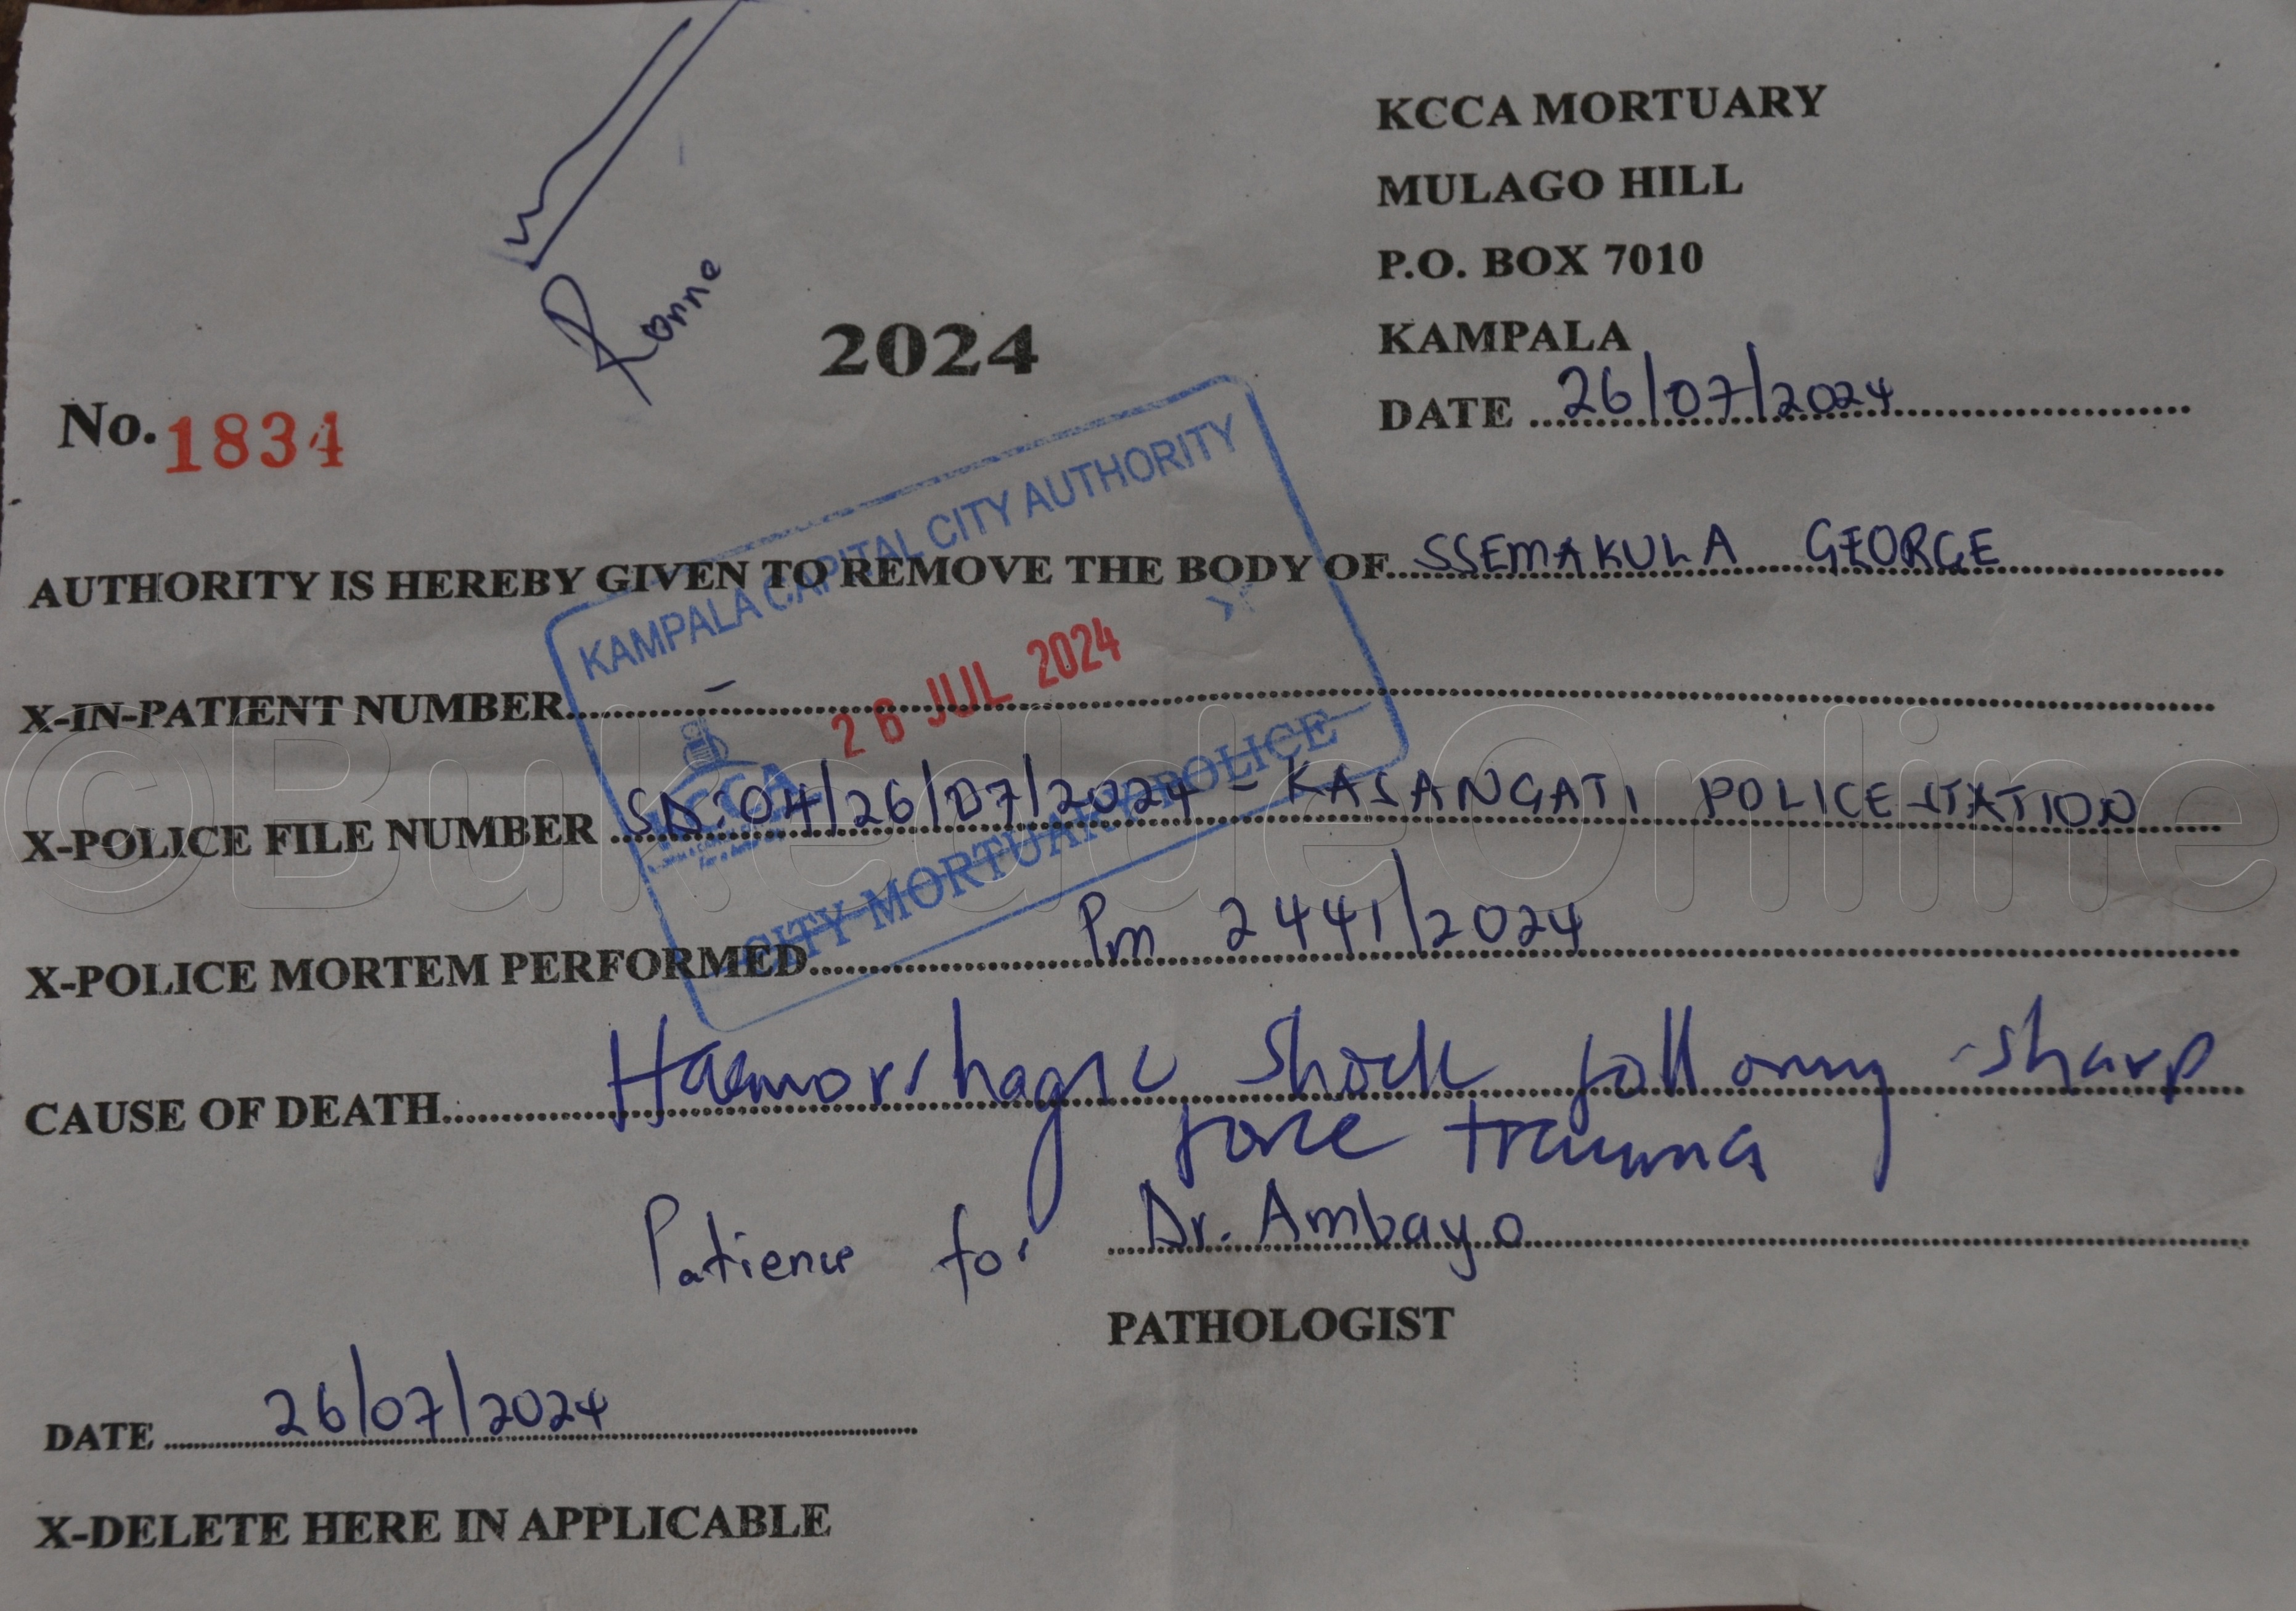 KCCA MORTUARY
MULAGO HILL
P.O. BOX 7010
KAMPALA
DATE 26/07/2024
Ronne
2024
No. 1834
AUTHORITY IS HEREBY GIVEN TO REMOVE THE BODY OF SSEMAKULA GEORGE
KAMPALA CAPITAL CITY AUTHORITY
26 JUL 2024
KCCA
CITY MORTUARY POLICE
X-IN-PATIENT NUMBER –
X-POLICE FILE NUMBER SD:04/26/07/2024 – KASANGATI POLICE STATION
©BukeddeOnline
X-POLICE MORTEM PERFORMED Pm 2441/2024
CAUSE OF DEATH Haemorrhagic shock following sharp
force trauma
Patience for Dr. Ambayo
PATHOLOGIST
DATE 26/07/2024
X-DELETE HERE IN APPLICABLE